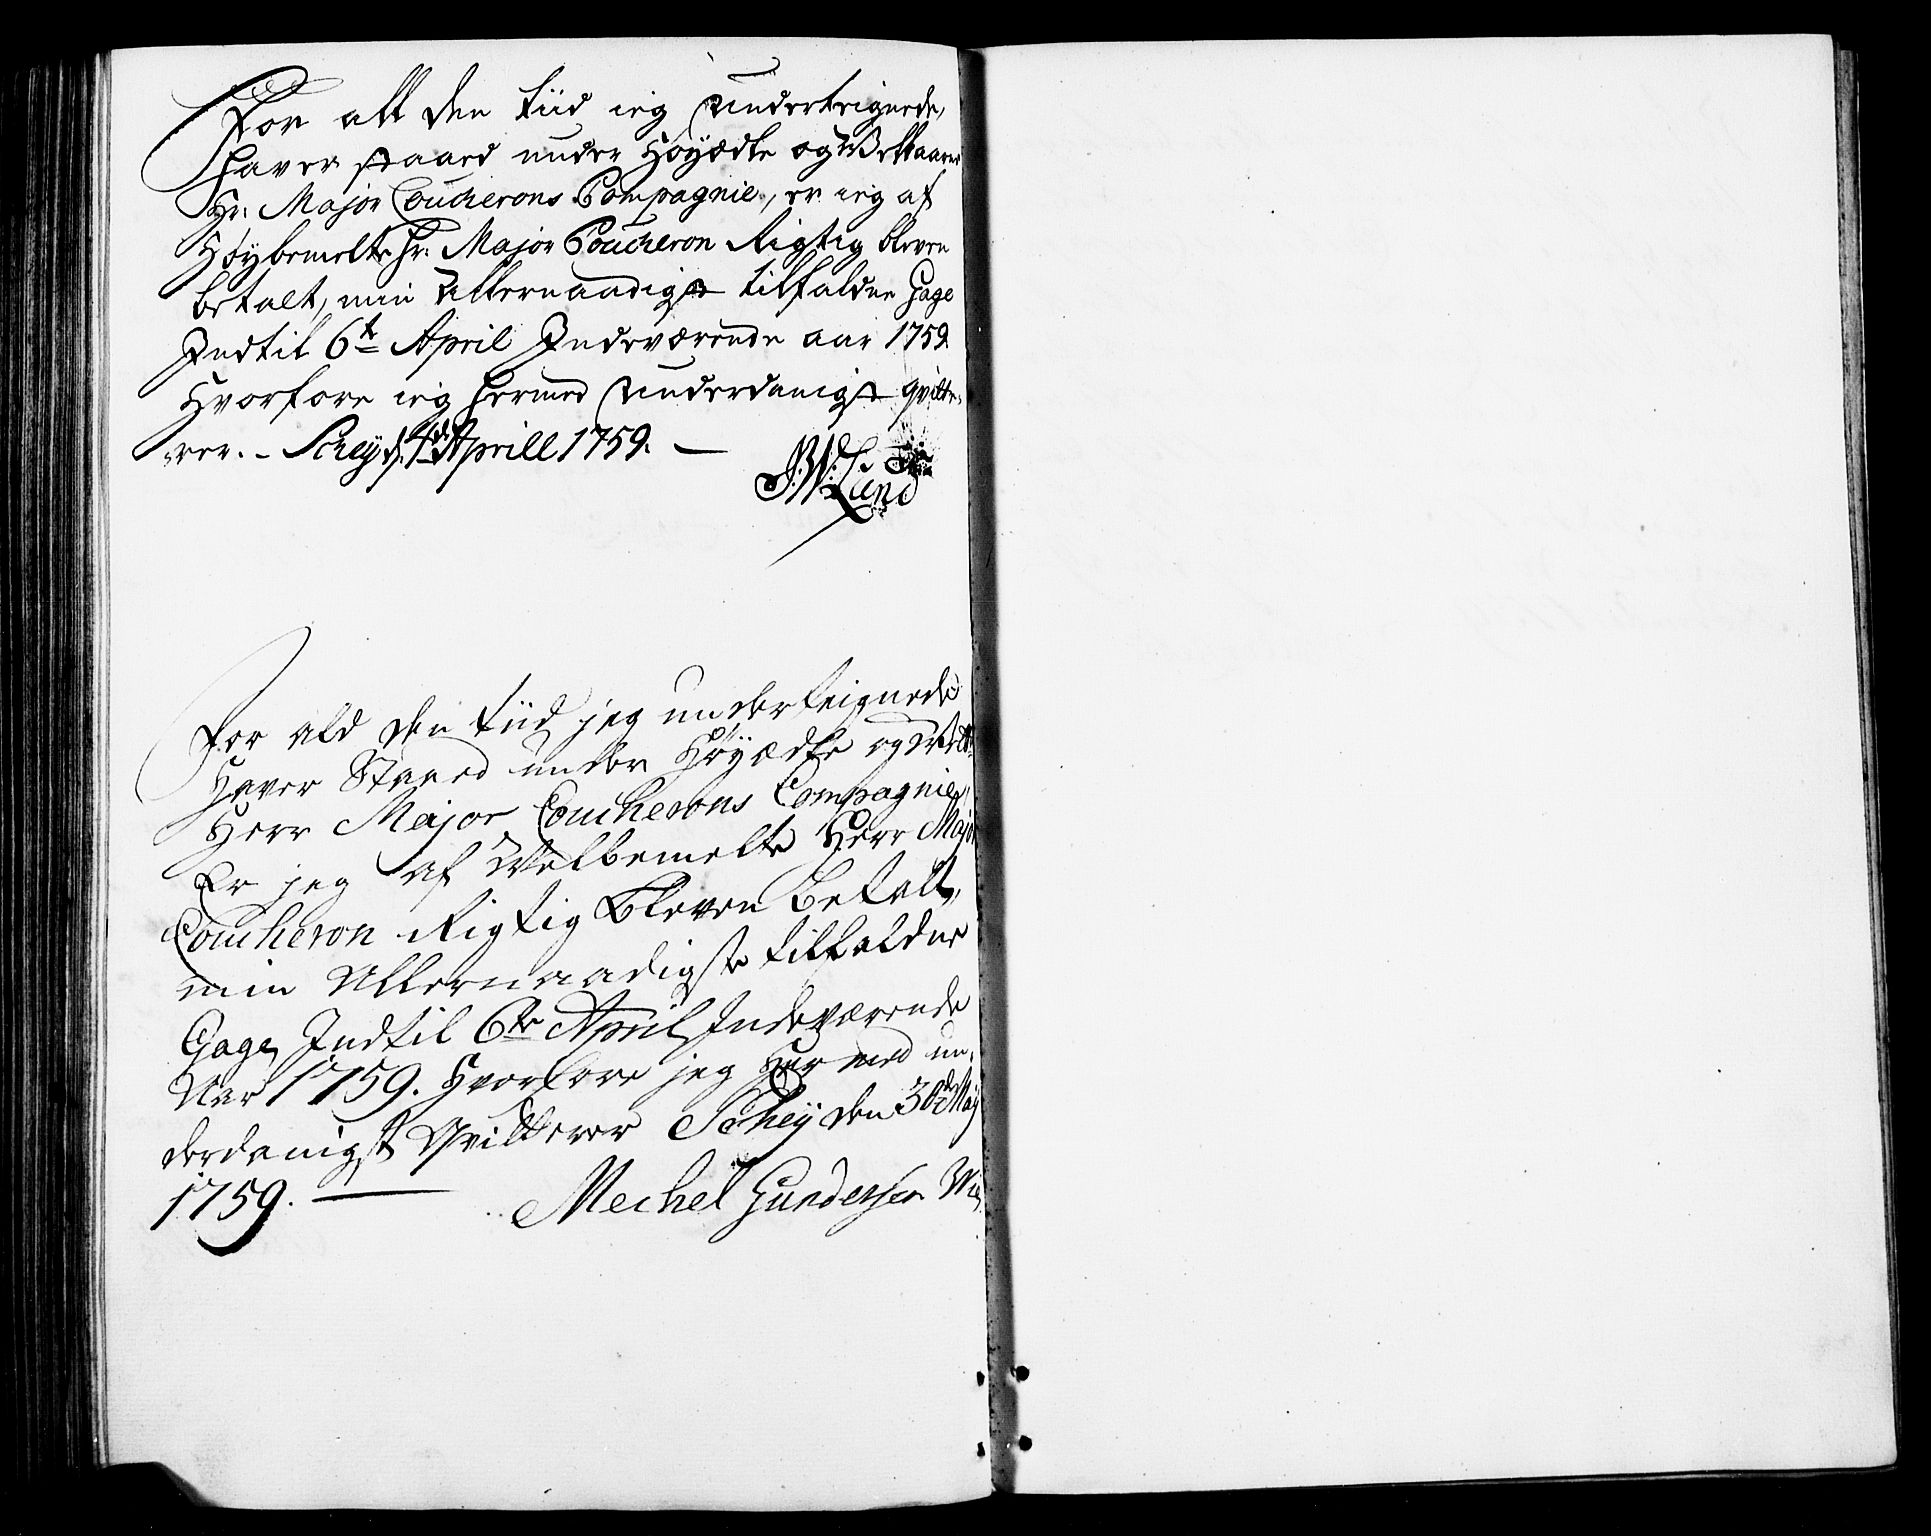 For alt den tiid ieg Underteignede,
haver staaed under Høyædle og Velbaarne
Hr: Major Coucherons Compagnie, er ieg af
Høybemelte Hr: Major Coucheron Rigtig bleven
betalt, min Allernaadigst tilfaldne Gage
Indtil 6te April Indeværende aar 1759.
Hvorfore ieg hermed Underdanigst qvitte-
rer. - Schey d. 4de Aprill 1759. —
J.W. Lund
For ald den tiid jeg underteignede
Haver Staaed under Høyædle og
Herr Major Coucherons Compagnie,
Er jeg af Velbemelte Herr Major
Coucheron Rigtig Bleven Betalt,
min Allernaadigste tilfaldne
Gage, Indtil 6te April Indeværende
Aar 1759. Hvorfore jeg Her med un-
derdanigst Qvitterer Schey den 30de Maj
1759. — Mechel Gundersen